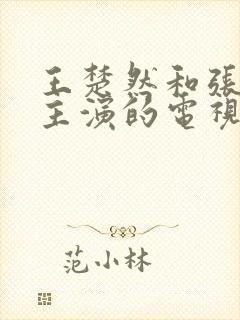 王楚然和張
主演的電視
范小林